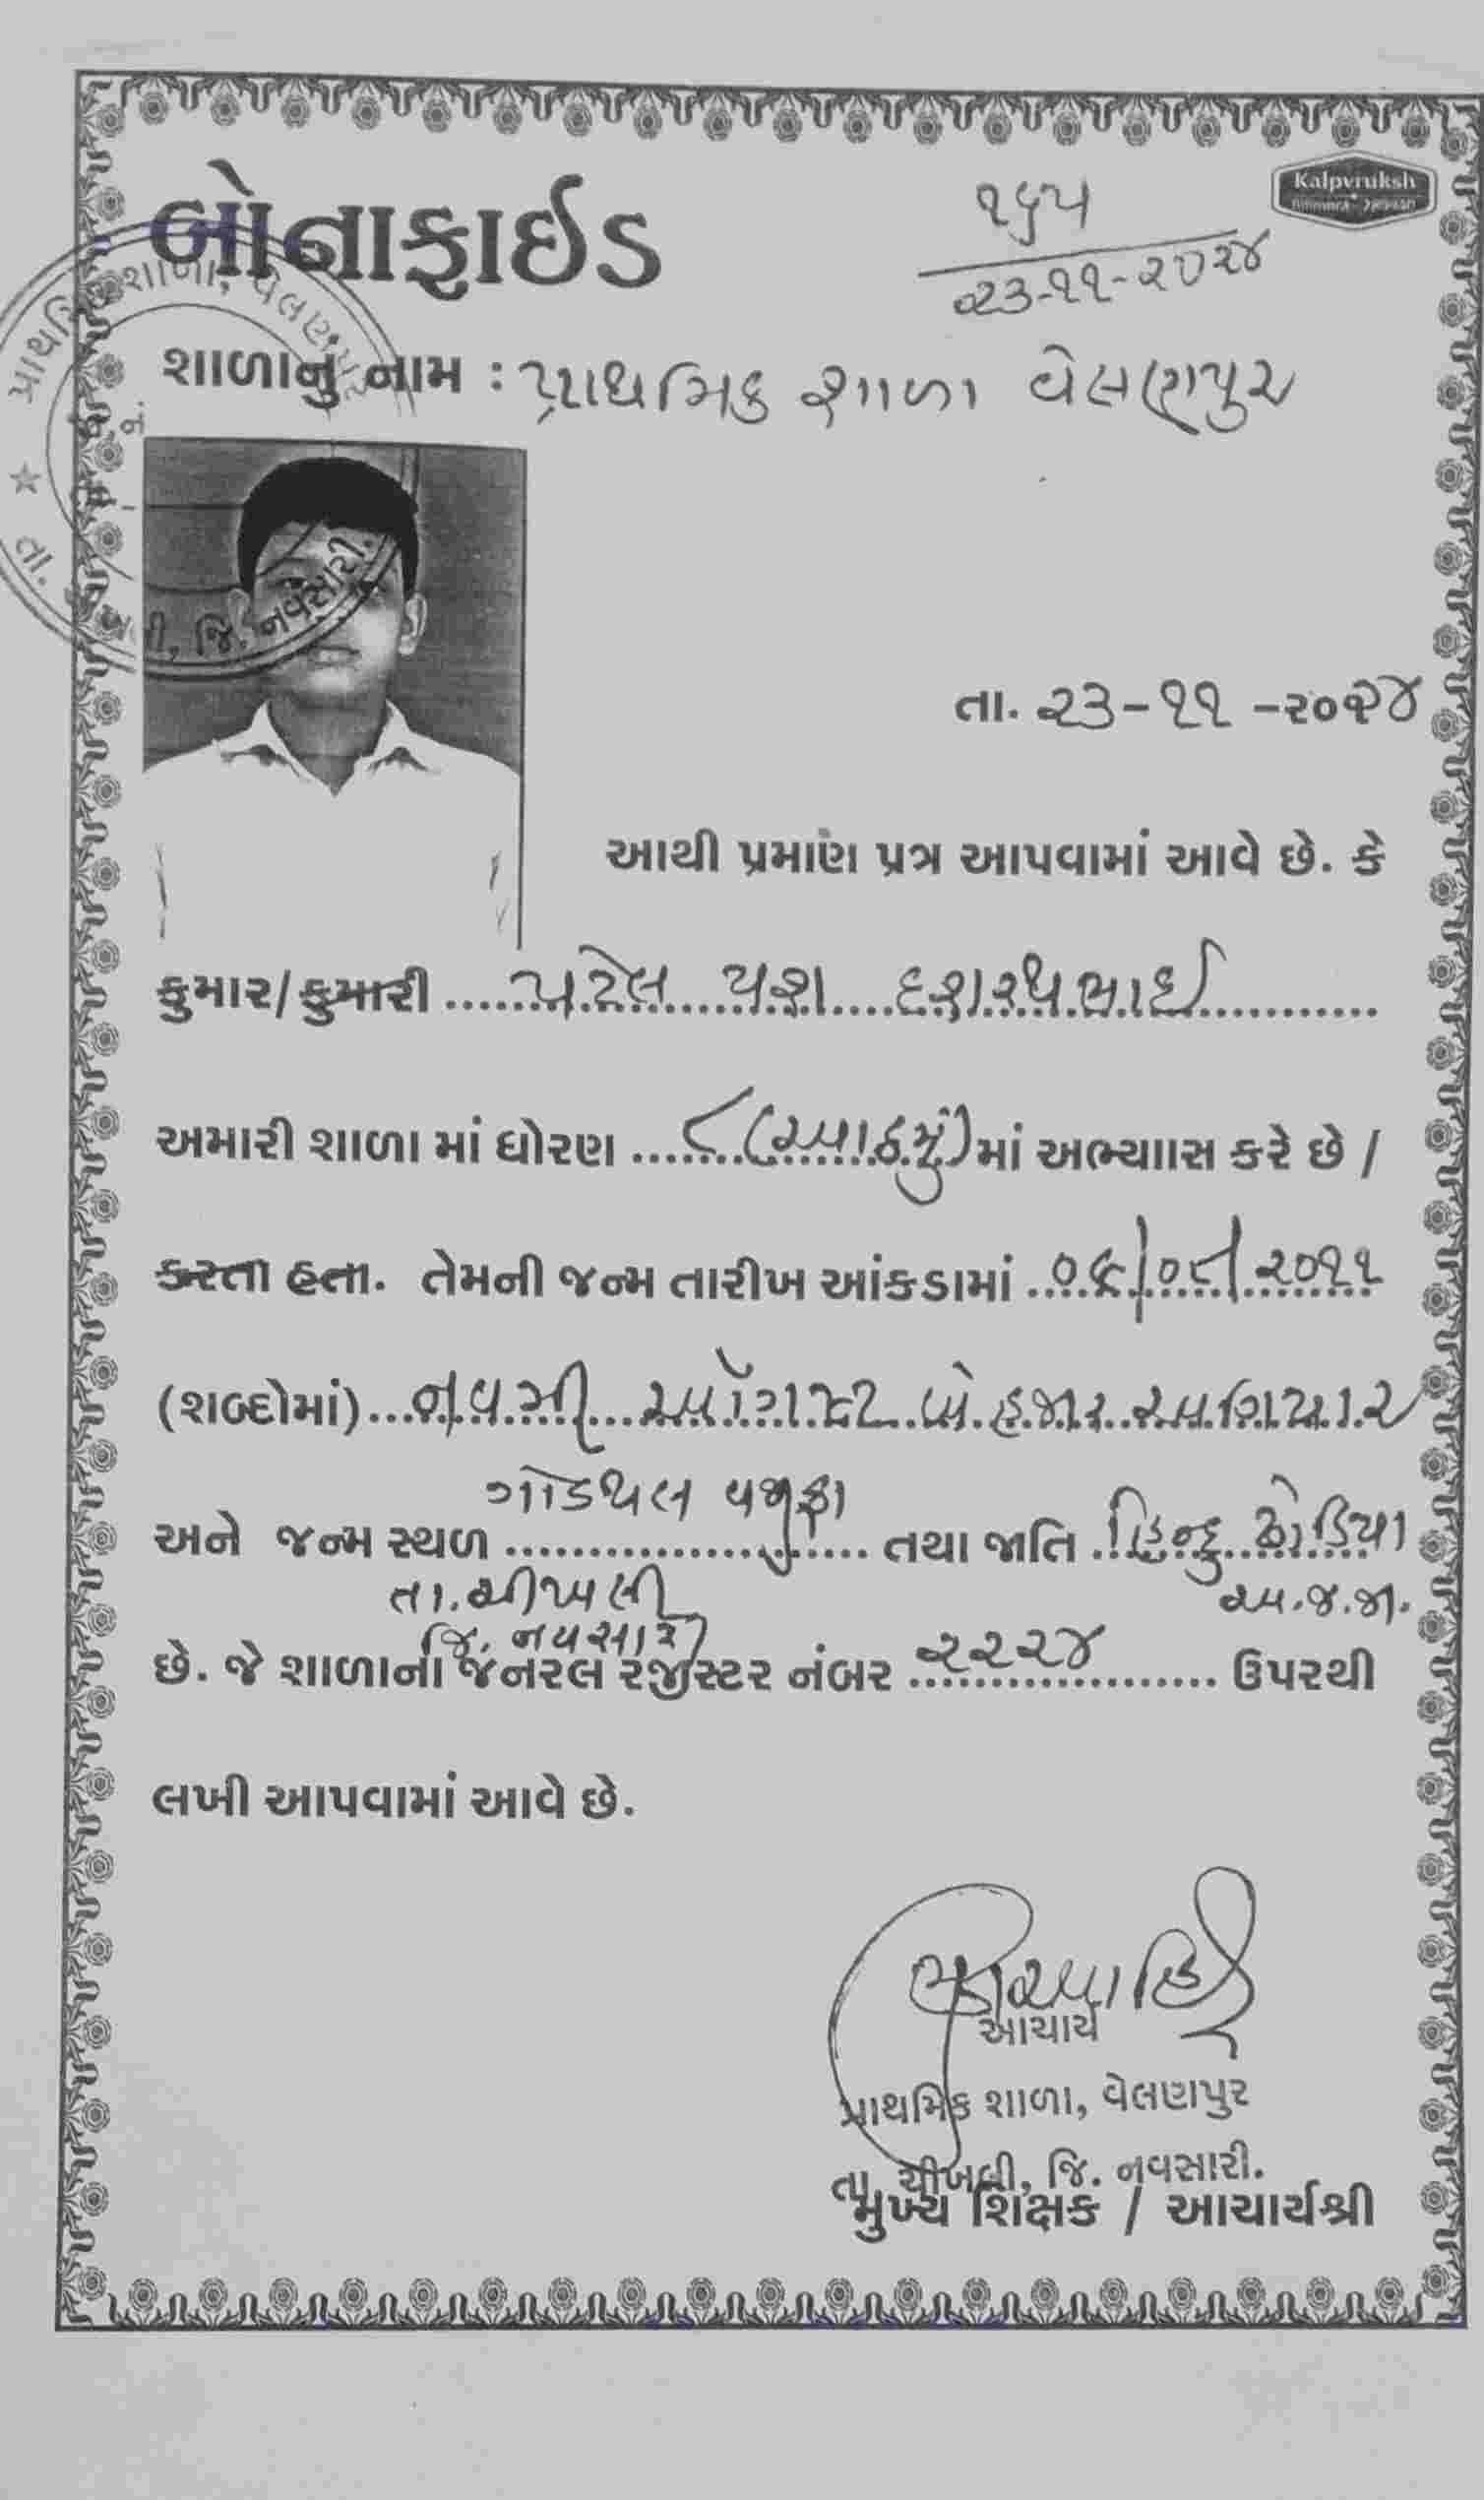 Kalpvruksh
બોનાફાઈડ
૧૬૫
૨૩-૧૧-૨૦૨૪
પ્રાથમિક શાળા, વેલણપુર
જિ. નવસારી.
શાળાનું નામ : પ્રાથમિક શાળા વેલણપુર
તા. ૨૩-૧૧-૨૦૨૪
આથી પ્રમાણ પત્ર આપવામાં આવે છે. કે
કુમાર/કુમારી પટેલ યશ દશરથભાઈ
અમારી શાળા માં ધોરણ ૮(આઠમું)માં અભ્યાાસ કરે છે /
કરતા હતા. તેમની જન્મ તારીખ આંકડામાં ૦૯/૦૮/૨૦૧૧
(શબ્દોમાં) નવમી ઓગષ્ટ બે હજાર અગિયાર
ગોડથલ
અને જન્મ સ્થળ તથા જાતિ હિન્દુ ઢોડિયા
તા.ચીખલી અ.જ.જા.
જિ. નવસારી
છે. જે શાળાના જનરલ રજીસ્ટર નંબર ૨૨૨૪ ઉપરથી
લખી આપવામાં આવે છે.
આચાર્ય
પ્રાથમિક શાળા, વેલણપુર
તા. ચીખલી, જિ. નવસારી.
મુખ્ય શિક્ષક / આચાર્યશ્રી